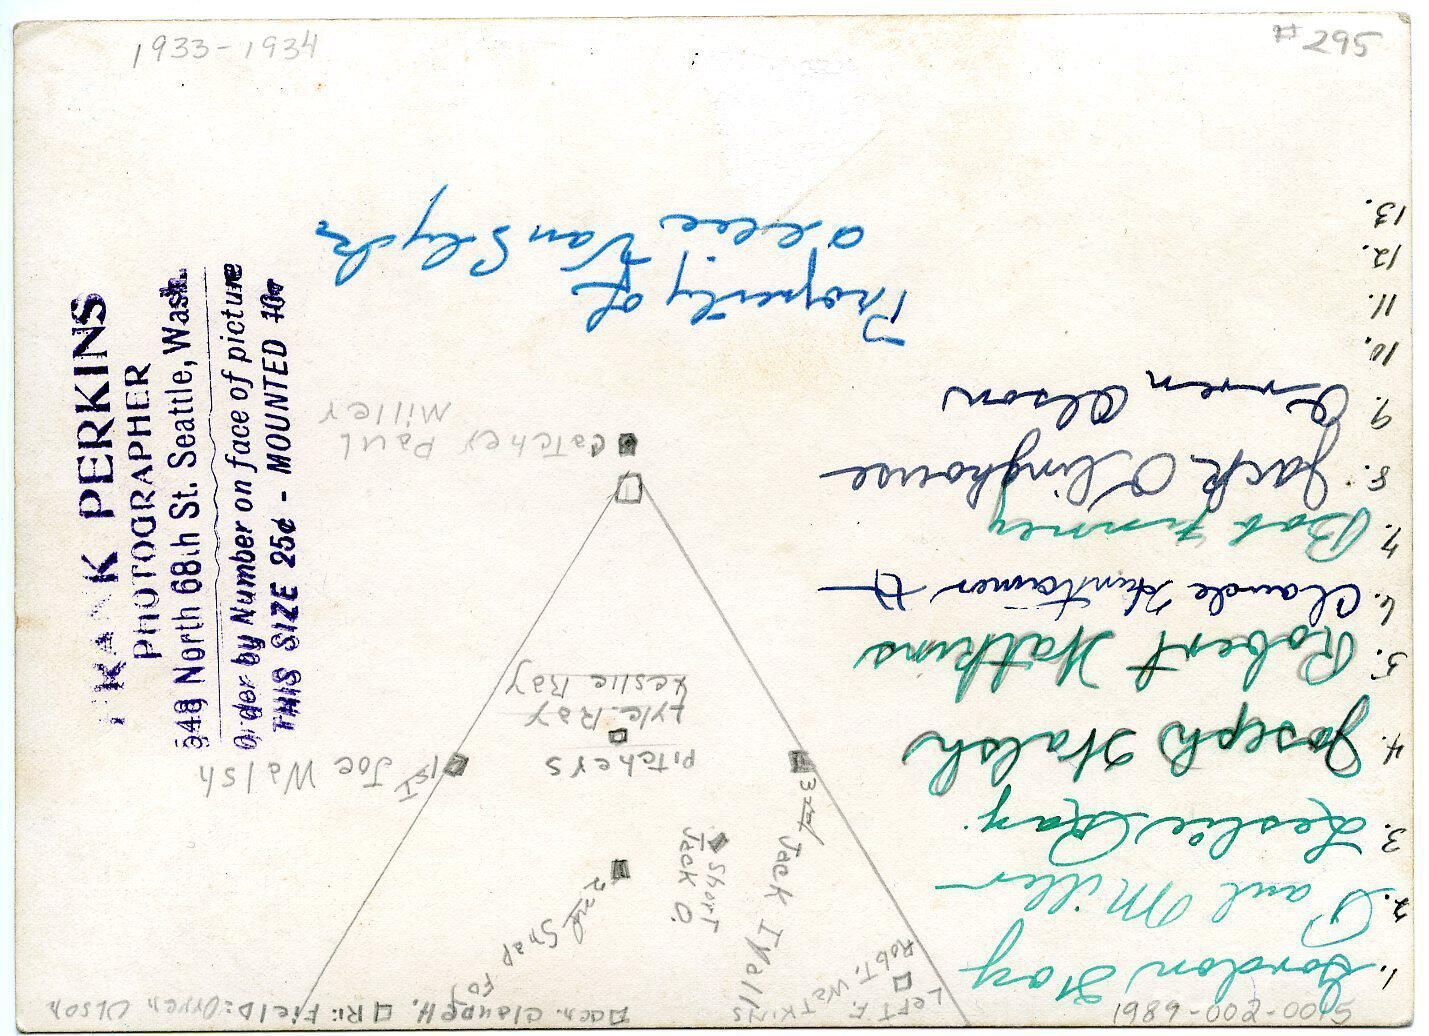 1933-1934
#295
FRANK PERKINS
PHOTOGRAPHER
948 North 68th St. Seattle, Wash.
Order by Number on face of picture
THIS SIZE 25¢ - MOUNTED
Property of
Van Slyck
1. Gordon
2. Paul Miller
3. Leslie Ray
4. Joseph Walsh
5. Robert Watkins
6. Claude Huntamer
7. Bob Finney
8. Jack Olinghouse
9. Orren Olson
10.
11.
12.
13.
Catcher Paul
Miller
Pitchers
Lyle Ray
Leslie Ray
1st Joe Walsh
3rd Jack Ivalls
Short
Jack O.
2nd Snap
Foy
Left F.
Robt. Watkins
Claude H. Ri: Field: Orren Olson
1989-002-0015